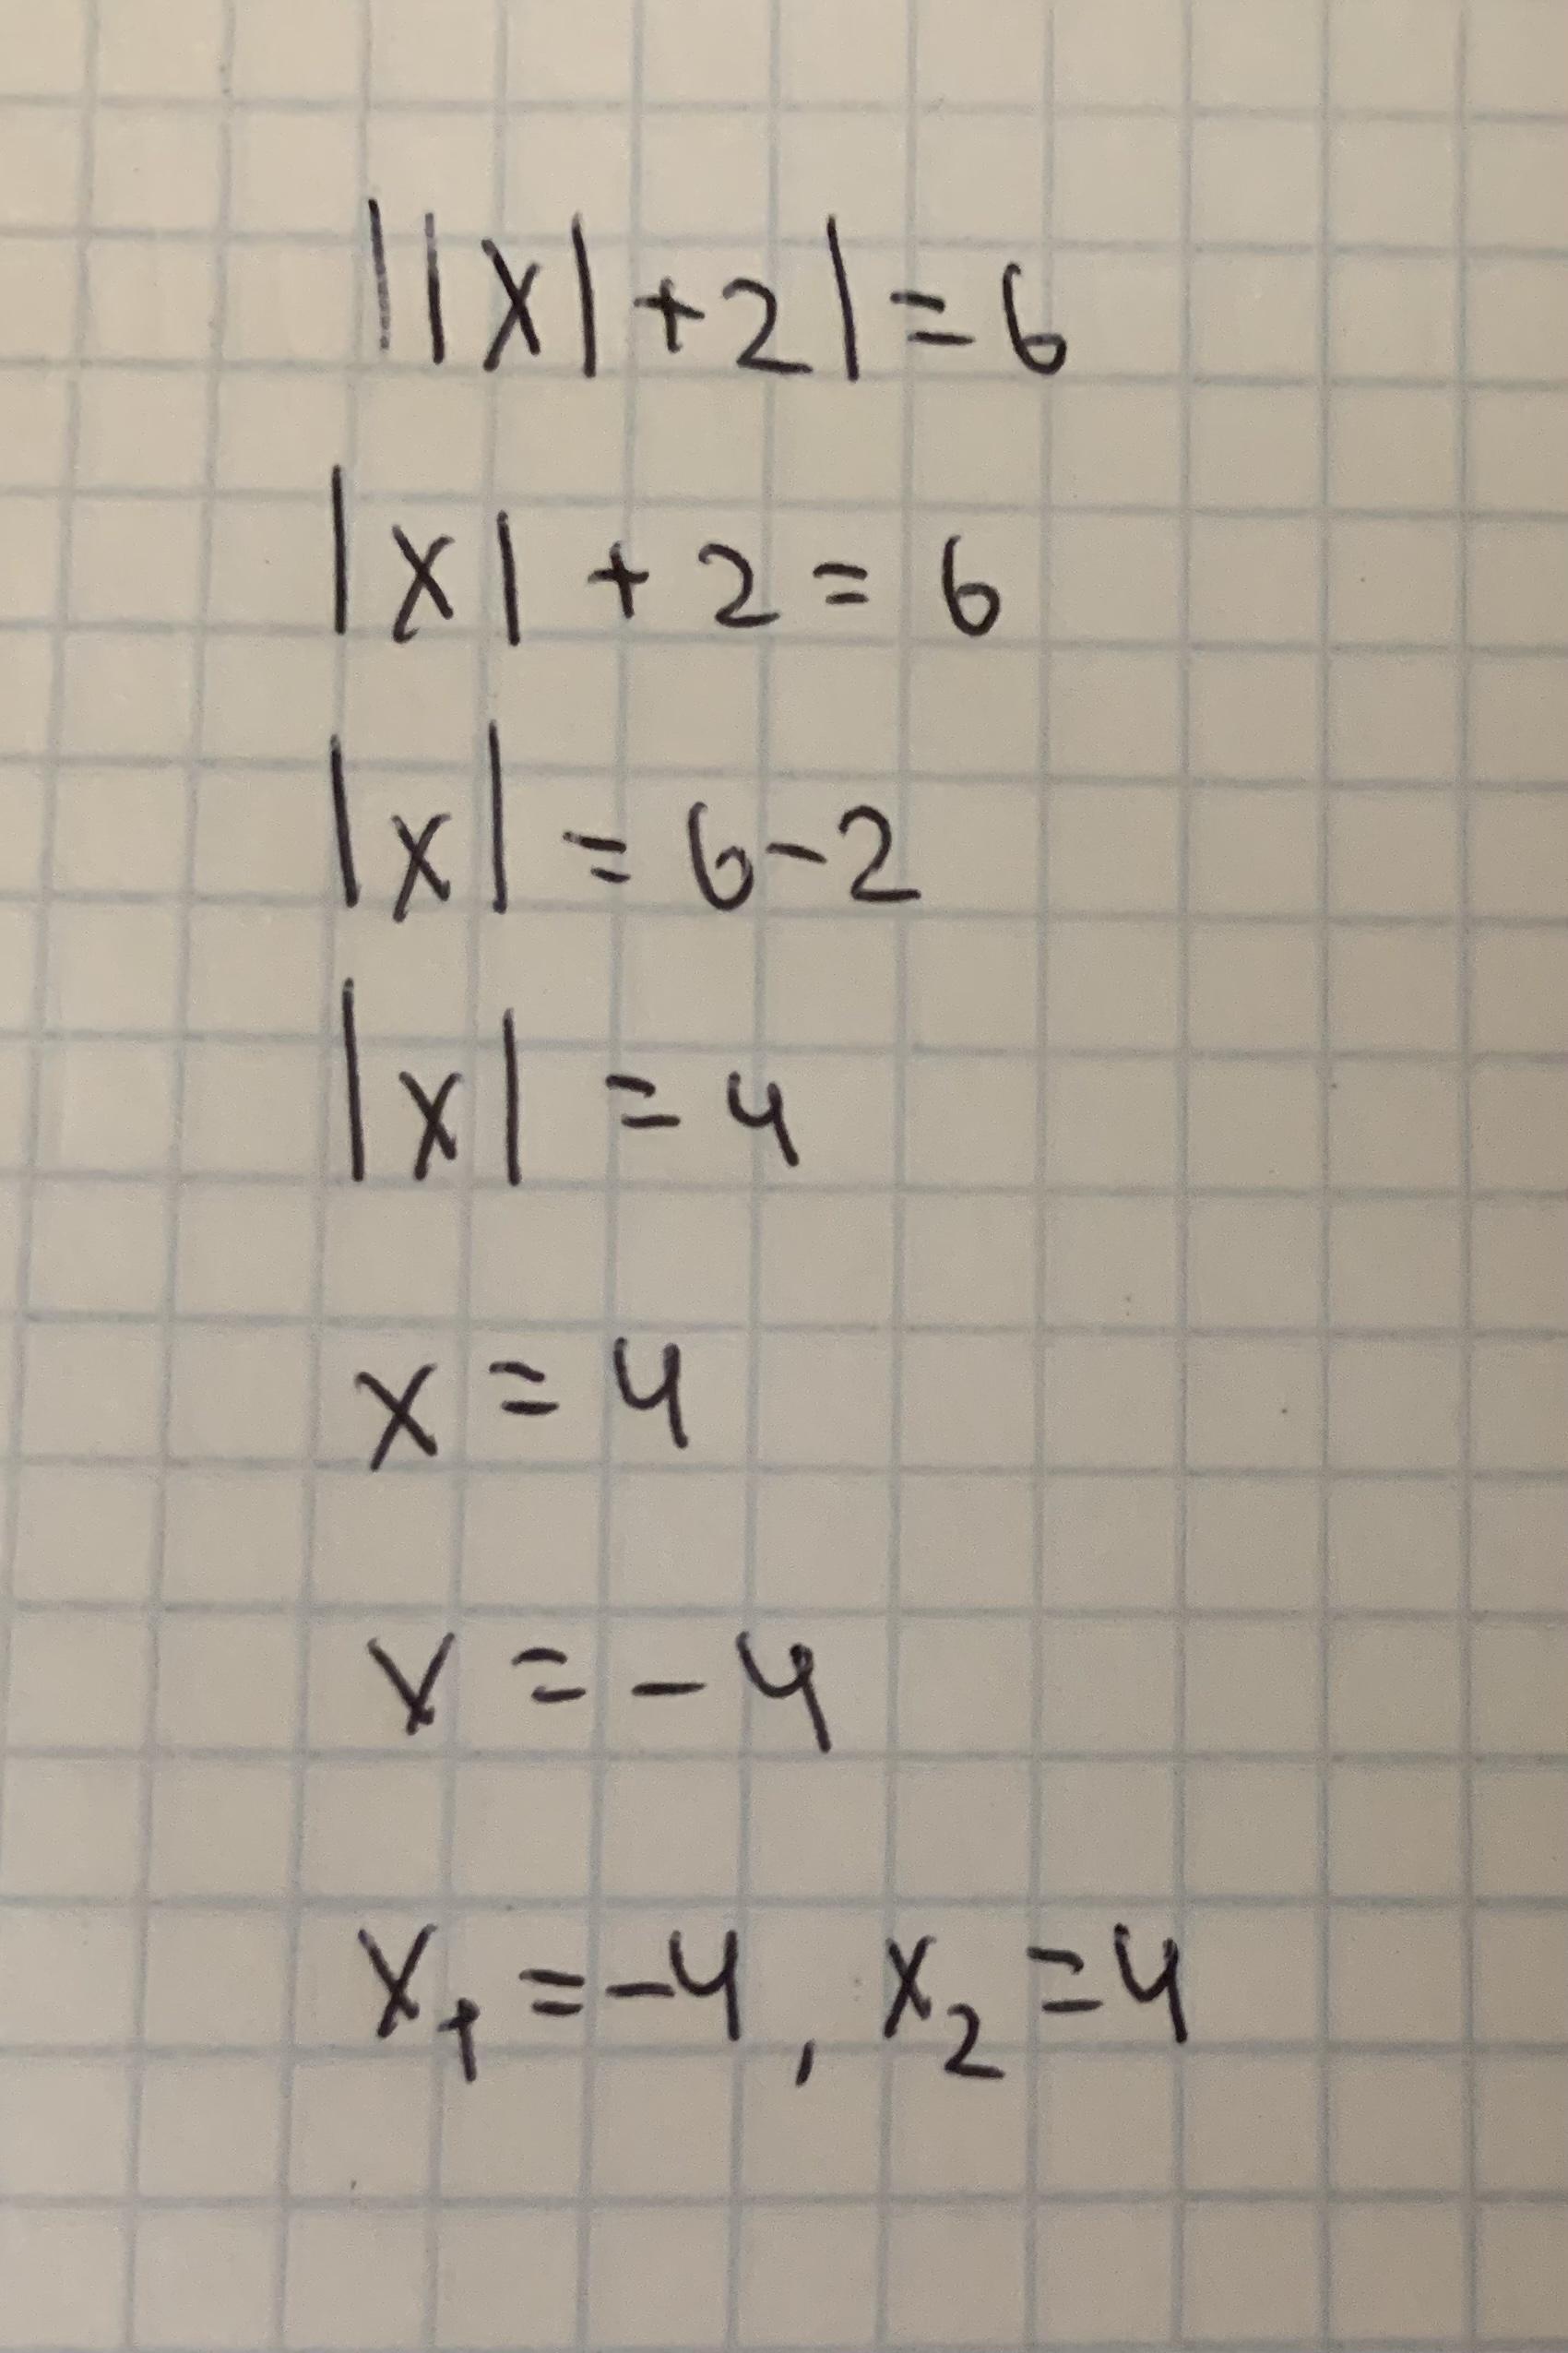 ||x|+2|=6
|x|+2=6
|x|=6-2
|x|=4
x=4
x=-4
x₁=-4, x₂=4